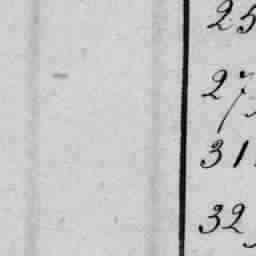 25
27,
31.
32,